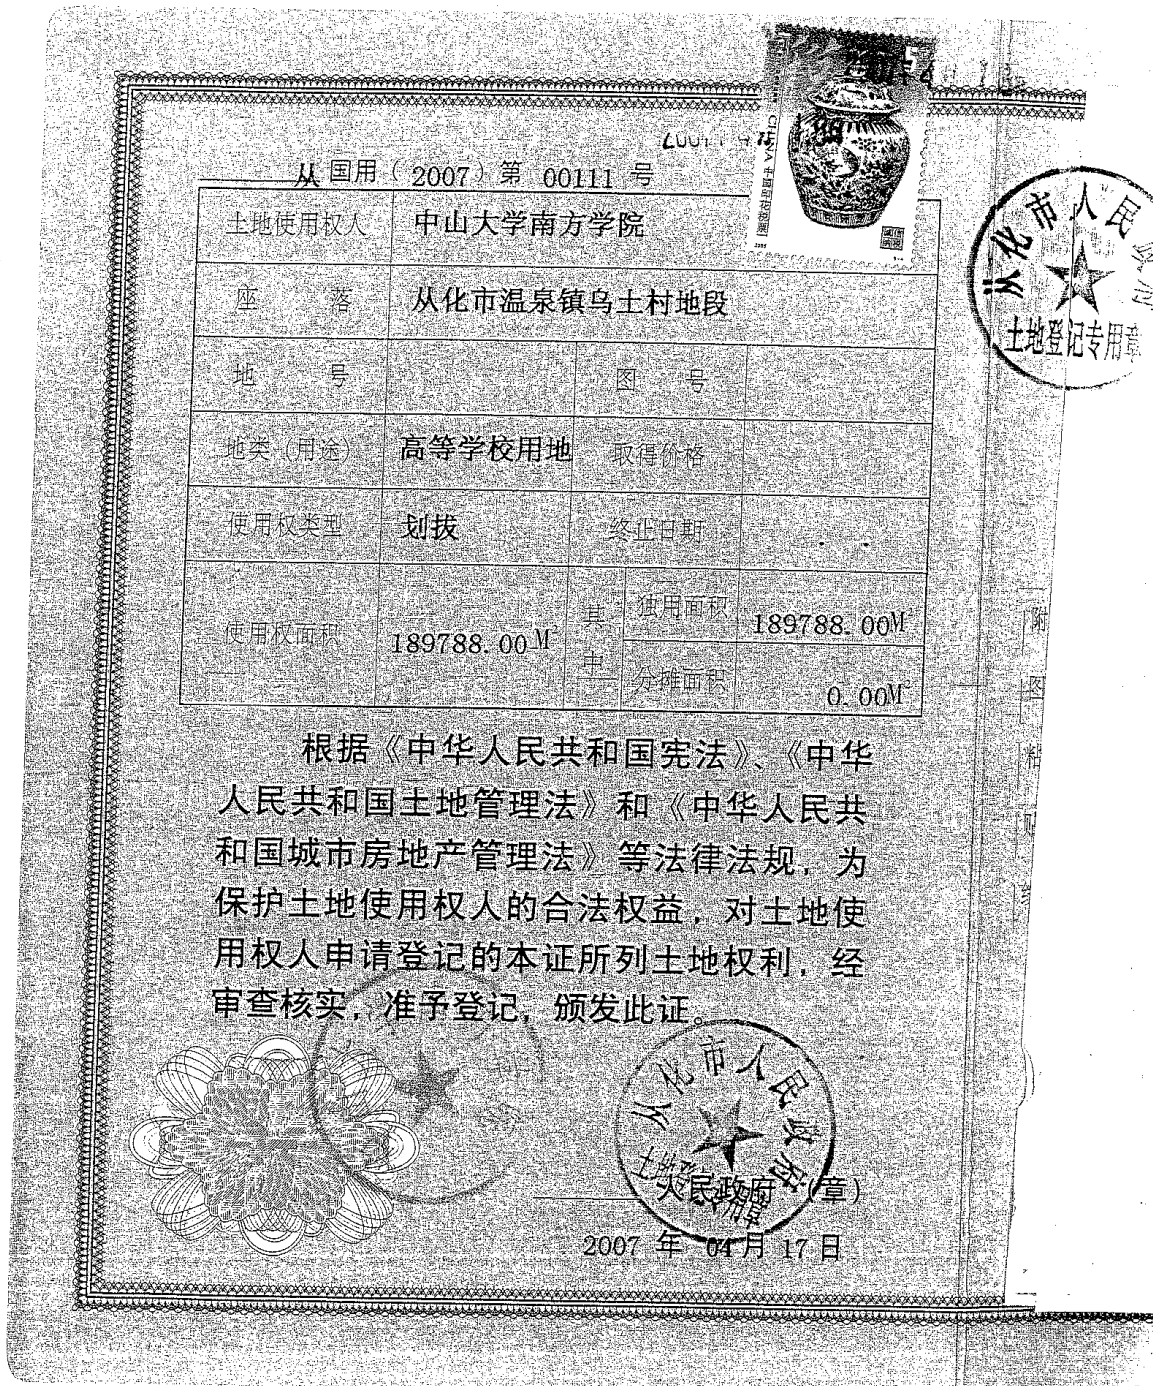 从国用（2007）第 00111 号
土地使用权人 中山大学南方学院
座 落 从化市温泉镇乌土村地段
地 号 图 号
地类（用途） 高等学校用地 取得价格
使用权类型 划拨 终止日期
使用权面积 189788.00M² 其中 独用面积 189788.00M²
分摊面积 0.00M²
根据《中华人民共和国宪法》、《中华
人民共和国土地管理法》和《中华人民共
和国城市房地产管理法》等法律法规，为
保护土地使用权人的合法权益，对土地使
用权人申请登记的本证所列土地权利，经
审查核实，准予登记，颁发此证。
从化市人民政府
土地登记专用章
人民政府（章）
2007 年 04 月 17 日
从化市人民政府
土地登记专用章
附
图
粘
CHINA 中国